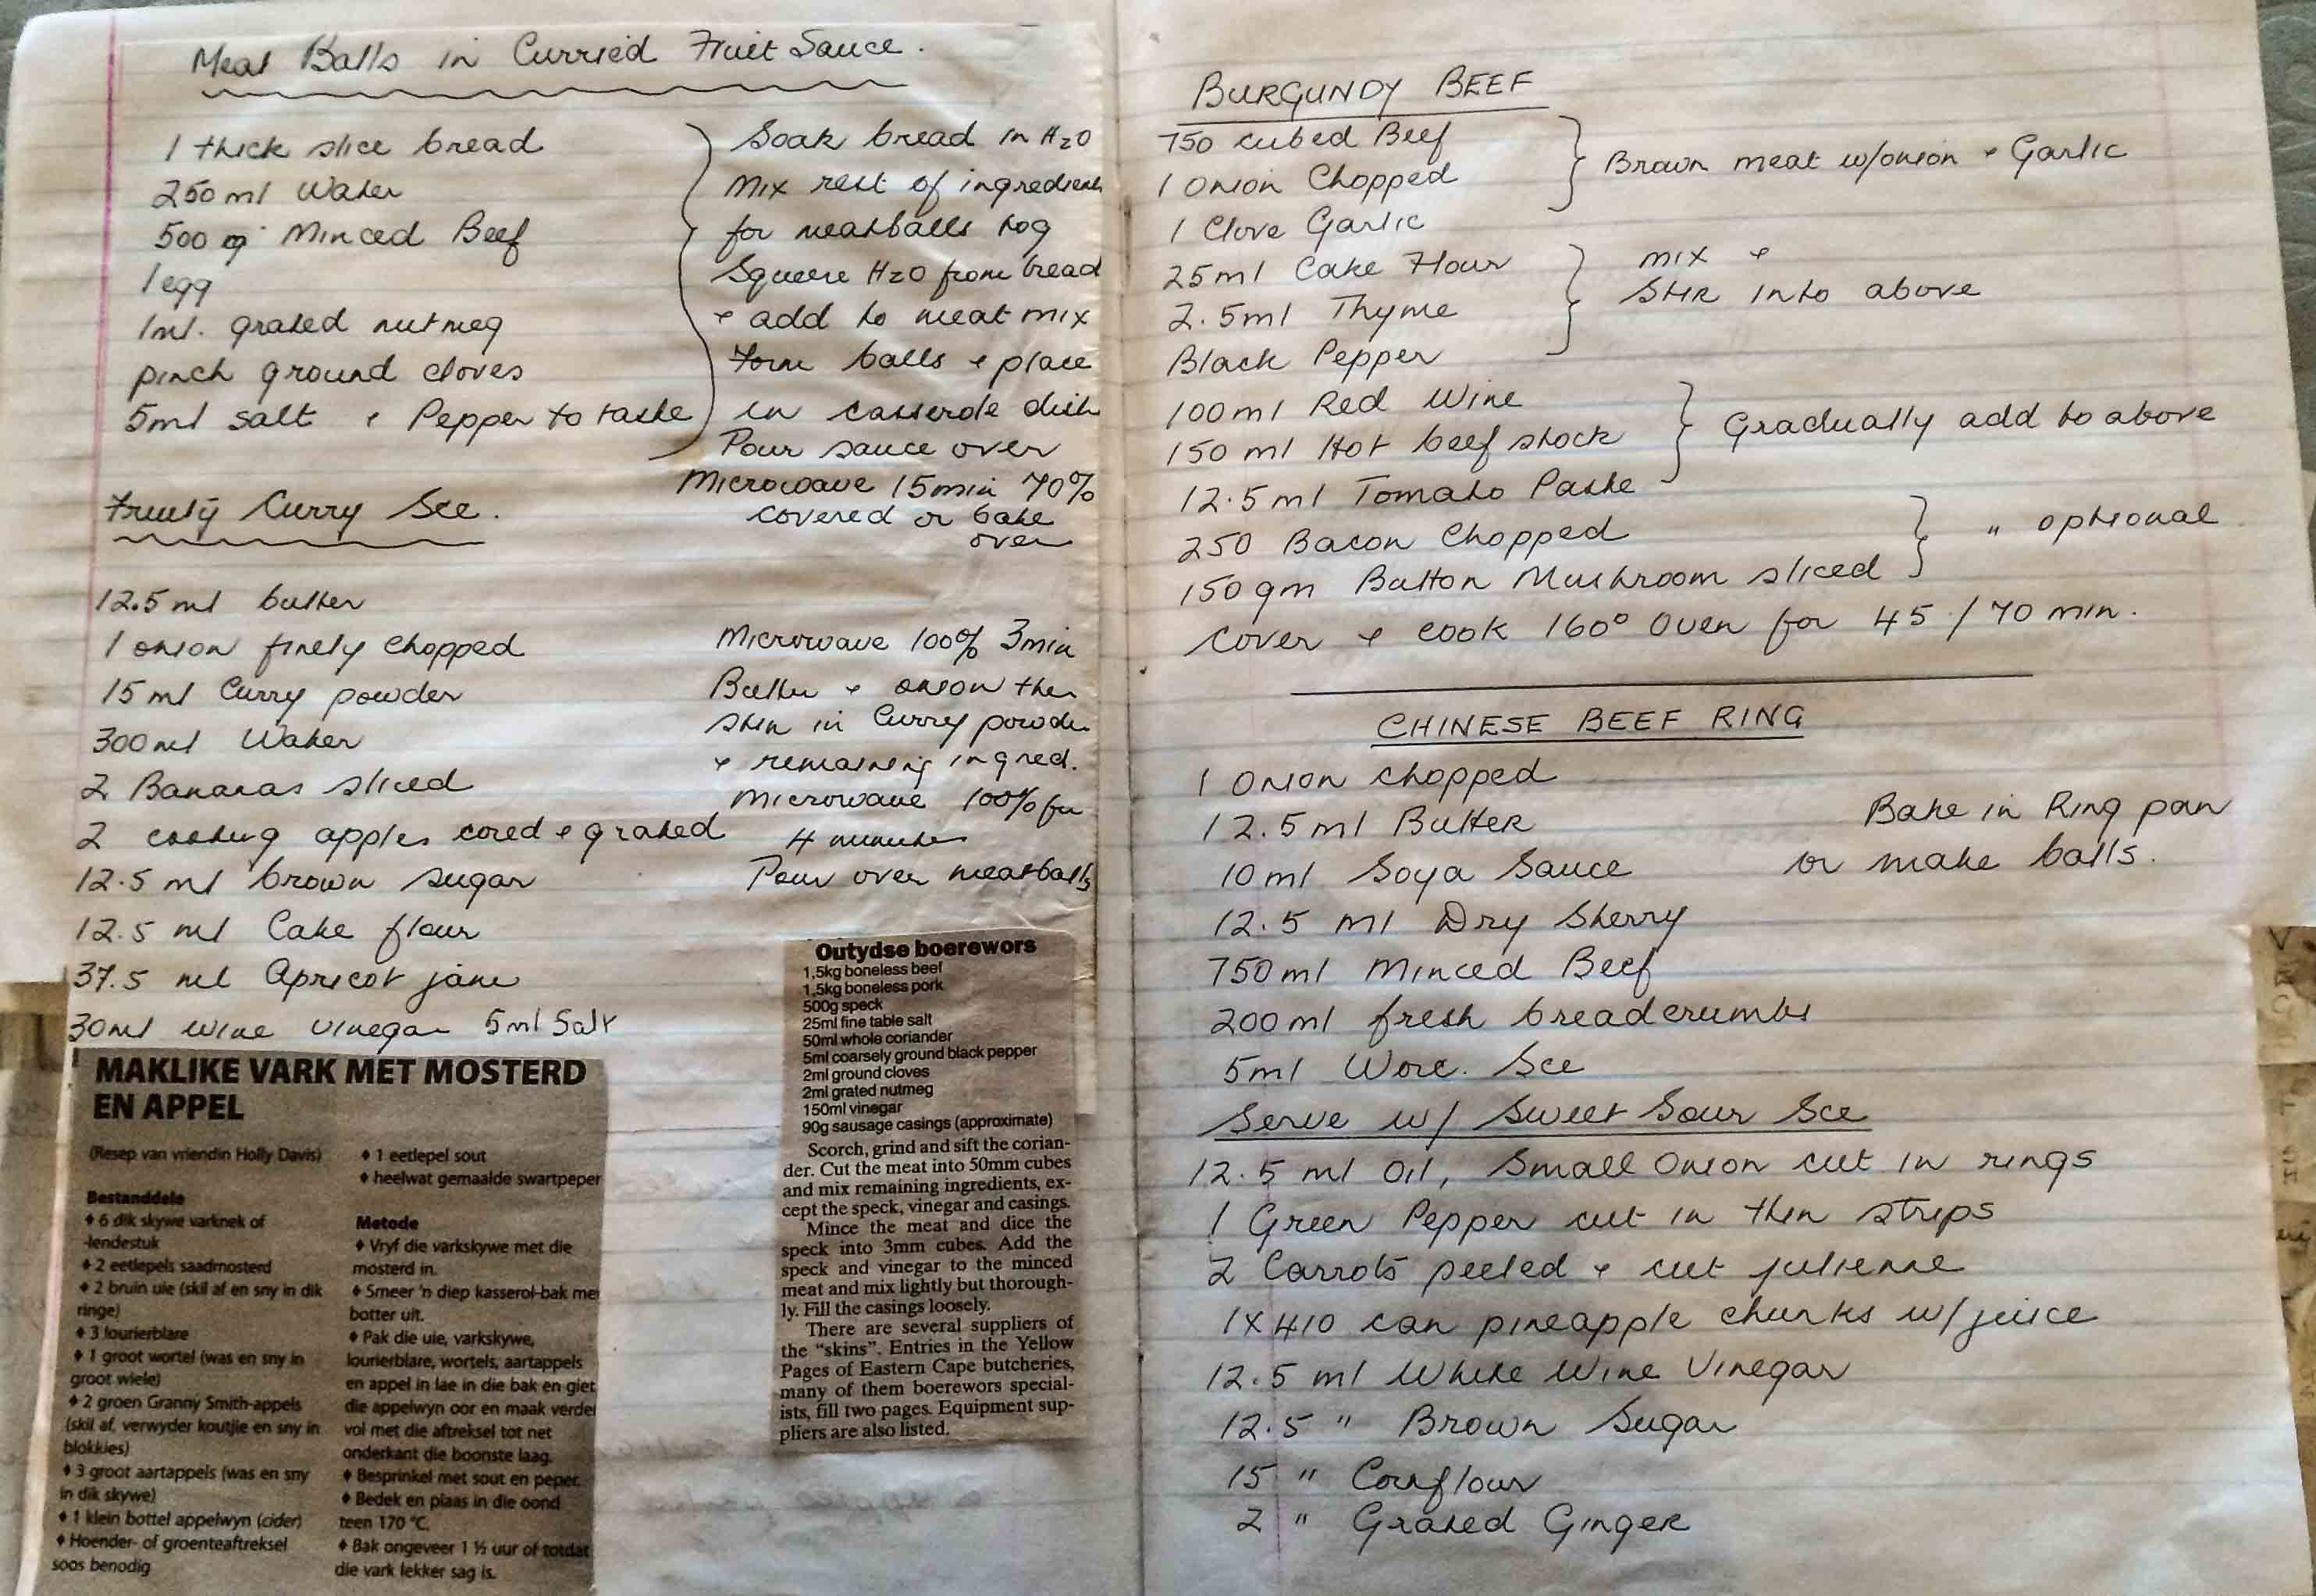 Meat Balls in Curried Fruit Sauce.
1 thick slice bread
250 ml Water
500 g Minced Beef
1 egg
1ml. grated nutmeg
pinch ground cloves
5ml salt & Pepper to taste
Soak bread in H2O
Mix rest of ingredients
for meatballs tog
Squeeze H2O from bread
& add to meat mix
Form balls & place
in casserole dish
Pour sauce over
Microwave 15min 70%
covered or bake
oven
Fruity Curry Sce.
12.5 ml butter
1 onion finely chopped
15 ml Curry powder
300 ml Water
2 Bananas sliced
2 cooking apples cored & grated
12.5 ml brown sugar
12.5 ml Cake flour
37.5 ml Apricot jam
30ml wine vinegar 5ml Salt
Microwave 100% 3min
Butter & onion then
stir in Curry powder
& remaining ingred.
Microwave 100% for
4 minutes
Pour over meatballs
MAKLIKE VARK MET MOSTERD
EN APPEL
(Resep van vriendin Holly Davis)
Bestanddele
♦ 6 dik skywe varknek of
-lendestuk
♦ 2 eetlepels saadmosterd
♦ 2 bruin uie (skil af en sny in dik
ringe)
♦ 3 lourierblare
♦ 1 groot wortel (was en sny in
groot wiele)
♦ 2 groen Granny Smith-appels
(skil af, verwyder koutjie en sny in
blokkies)
♦ 3 groot aartappels (was en sny
in dik skywe)
♦ 1 klein bottel appelwyn (cider)
♦ Hoender- of groenteaftreksel
soos benodig
♦ 1 eetlepel sout
♦ heelwat gemaalde swartpeper
Metode
♦ Vryf die varkskywe met die
mosterd in.
♦ Smeer 'n diep kasserol-bak me
botter uit.
♦ Pak die uie, varkskywe,
lourierblare, wortels, aartappels
en appel in lae in die bak en giet
die appelwyn oor en maak verder
vol met die aftreksel tot net
onderkant die boonste laag.
♦ Besprinkel met sout en peper.
♦ Bedek en plaas in die oond
teen 170 °C.
♦ Bak ongeveer 1 ½ uur of totdat
die vark lekker sag is.
Outydse boerewors
1,5kg boneless beef
1,5kg boneless pork
500g speck
25ml fine table salt
50ml whole coriander
5ml coarsely ground black pepper
2ml ground cloves
2ml grated nutmeg
150ml vinegar
90g sausage casings (approximate)
Scorch, grind and sift the corian-
der. Cut the meat into 50mm cubes
and mix remaining ingredients, ex-
cept the speck, vinegar and casings.
Mince the meat and dice the
speck into 3mm cubes. Add the
speck and vinegar to the minced
meat and mix lightly but thorough-
ly. Fill the casings loosely.
There are several suppliers of
the “skins”. Entries in the Yellow
Pages of Eastern Cape butcheries,
many of them boerewors special-
ists, fill two pages. Equipment sup-
pliers are also listed.
BURGUNDY BEEF
750 cubed Beef
1 Onion Chopped
1 Clove Garlic
Brown meat w/onion & Garlic
25ml Cake Flour
2.5ml Thyme
Black Pepper
mix &
Stir into above
100ml Red Wine
150 ml Hot beef stock
12.5 ml Tomato Paste
Gradually add to above
250 Bacon Chopped
150 gm Button Mushroom sliced
" optional
Cover & cook 160° Oven for 45 / 70 min.
CHINESE BEEF RING
1 Onion chopped
12.5 ml Butter
10 ml Soya Sauce
12.5 ml Dry Sherry
750 ml Minced Beef
200 ml fresh breadcrumbs
5ml Worc. Sce
Bake in Ring pan
or make balls.
Serve w/ Sweet Sour Sce
12.5 ml Oil, Small Onion cut in rings
1 Green Pepper cut in thin strips
2 Carrots peeled & cut julienne
1x410 can pineapple chunks w/juice
12.5 ml White Wine Vinegar
12.5 " Brown Sugar
15 " Cornflour
2 " Grated Ginger